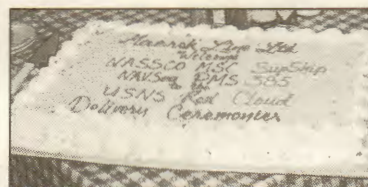 Maersk Line Ltd
Welcomes
NASSCO MSC SupShip
NAVSea PMS 385
to the
USNS Red Cloud
Delivery Ceremonies